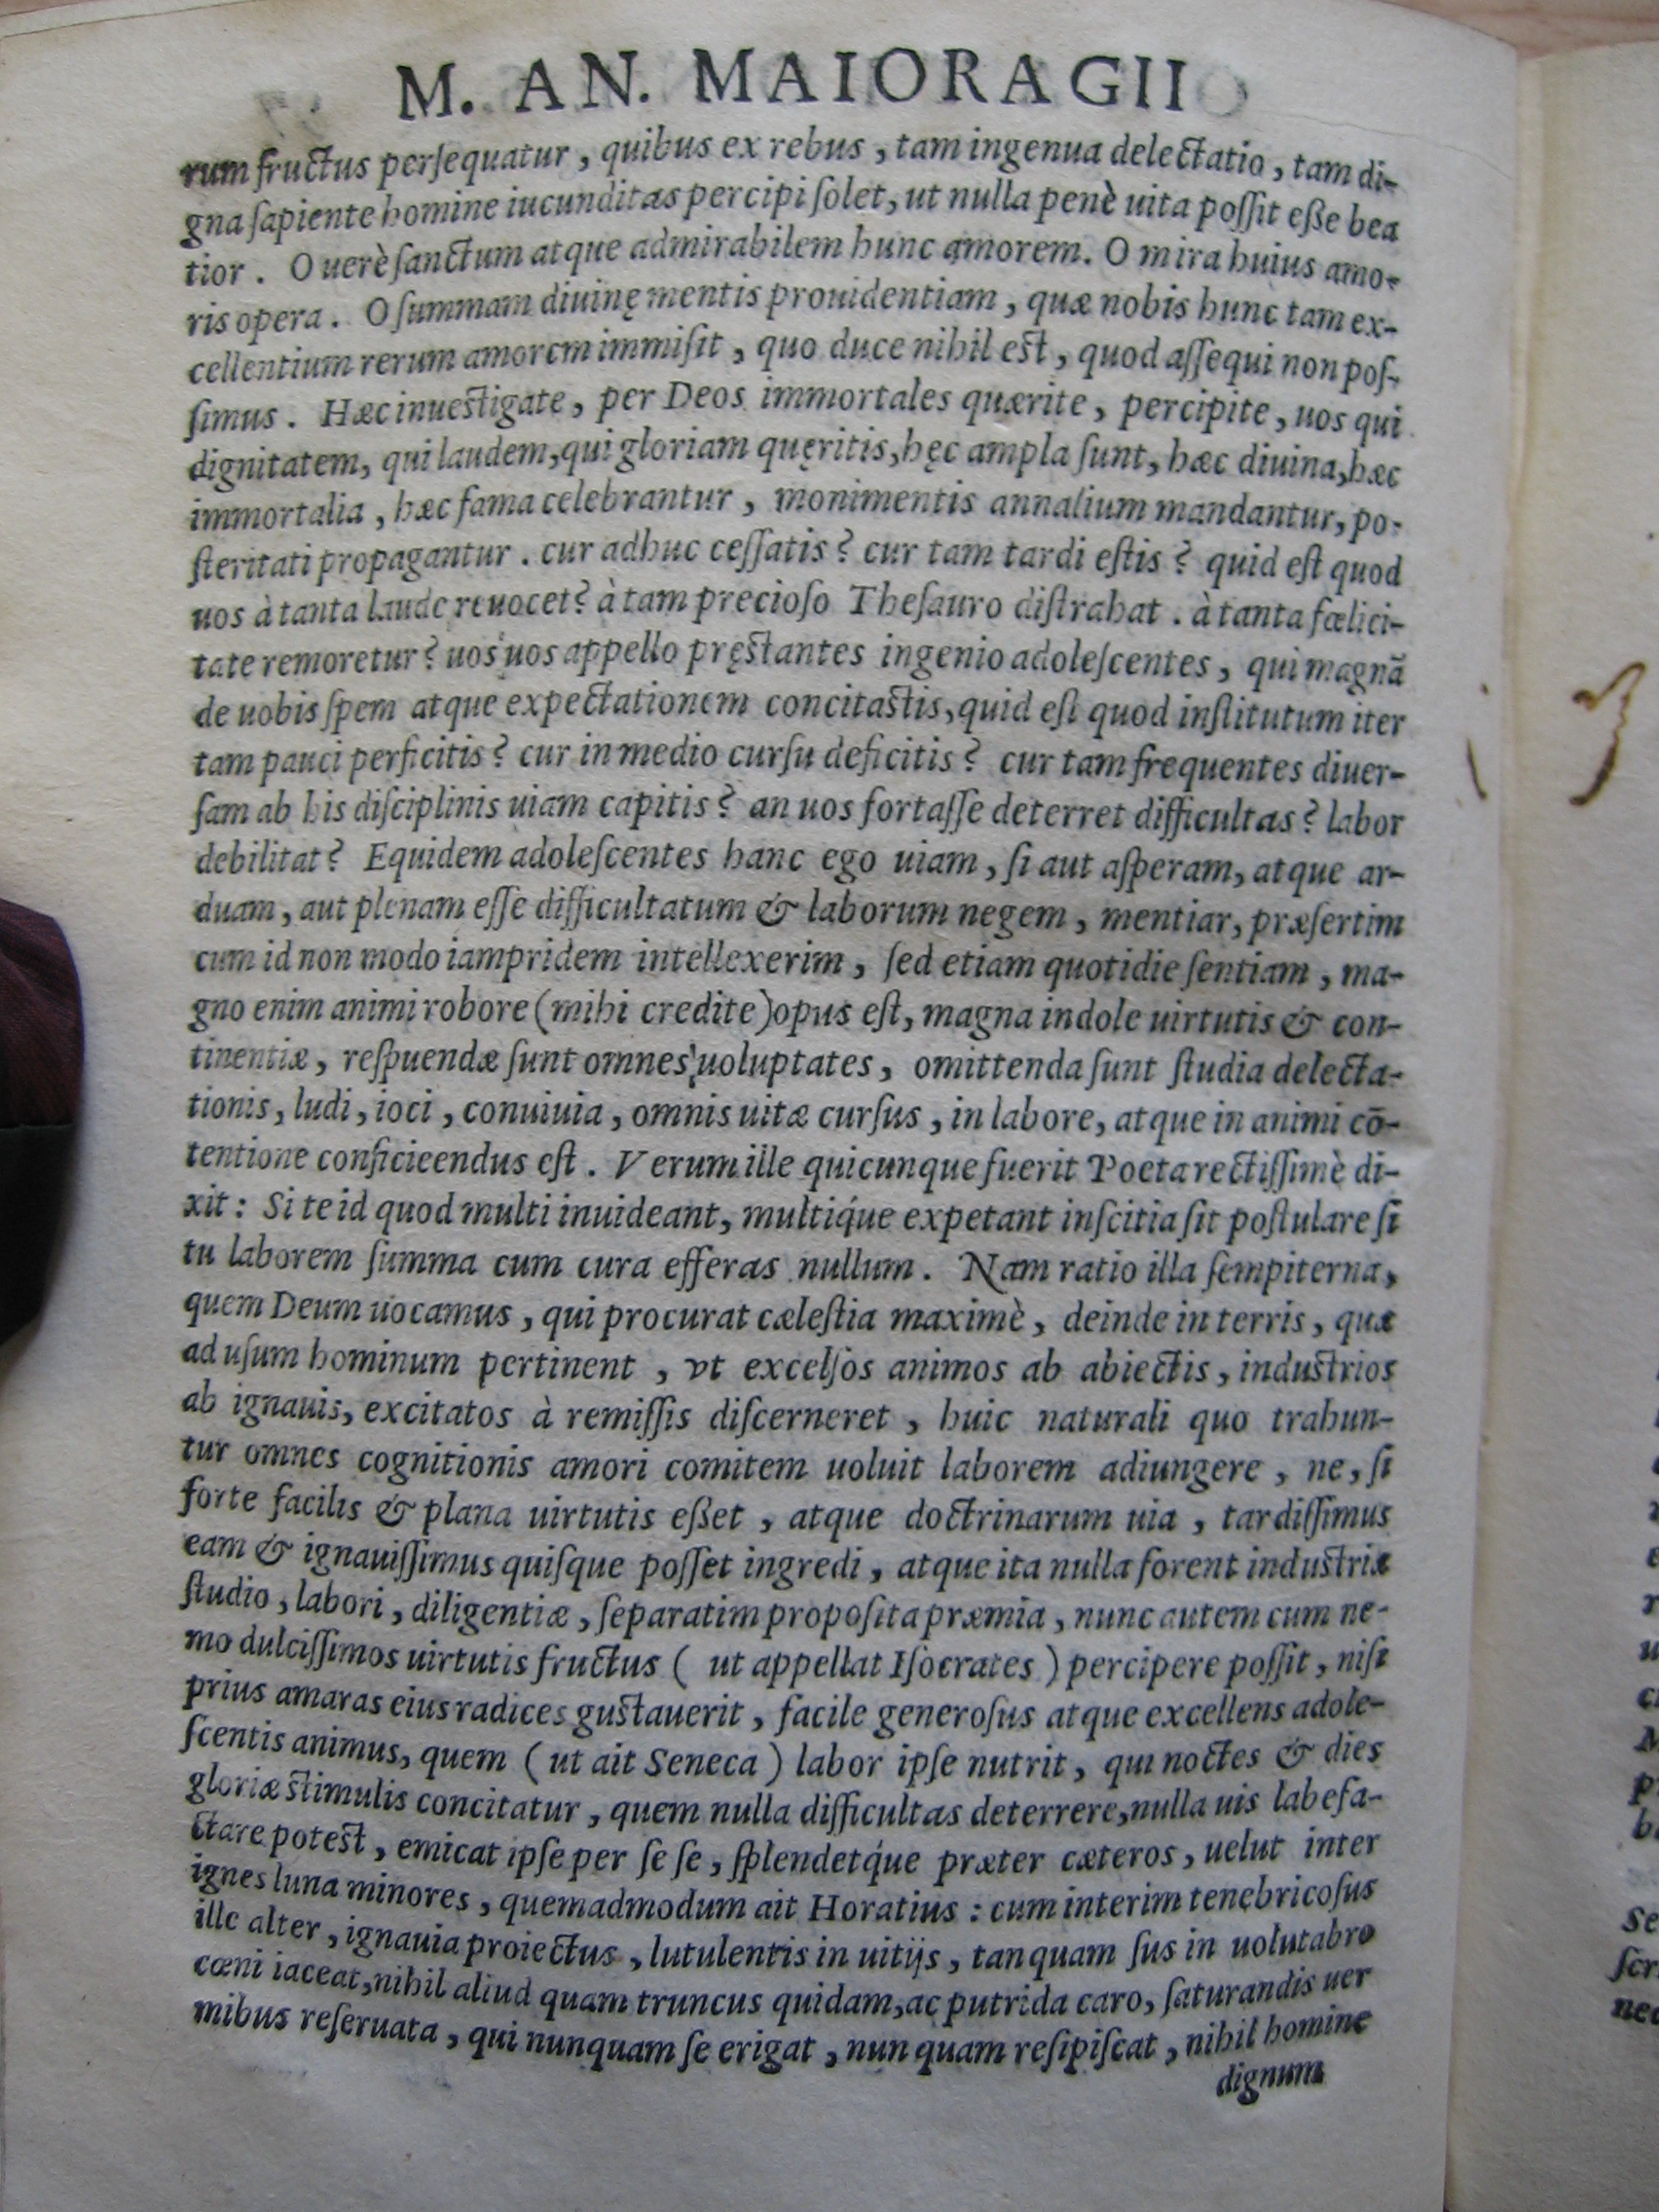 M. AN. MAIORAGII
rum fructus perſequatur, quibus ex rebus, tam ingenua delectatio, tam di-
gna ſapiente homine iucunditas percipi ſolet, ut nulla penè uita poſſit eſſe bea
tior. O uerè ſanctum atque admirabilem hunc amorem. O mira huius amo-
ris opera. O ſummam diuinę mentis prouidentiam, quæ nobis hunc tam ex-
cellentium rerum amorem immiſit, quo duce nihil est, quod aſſequi non poſ-
ſimus. Hæc inuestigate, per Deos immortales quærite, percipite, uos qui
dignitatem, qui laudem, qui gloriam quęritis, hęc ampla ſunt, hæc diuina, hæc
immortalia, hæc fama celebrantur, monimentis annalium mandantur, po-
ſteritati propagantur. cur adhuc ceſſatis? cur tam tardi eſtis? quid eſt quod
uos à tanta laude reuocet? à tam precioſo Theſauro diſtrahat. à tanta fœlici-
tate remoretur? uos uos appello pręstantes ingenio adoleſcentes, qui magnã
de uobis ſpem atque expectationem concitastis, quid eſt quod inſtitutum iter
tam pauci perficitis? cur in medio curſu deficitis? cur tam frequentes diuer-
ſam ab his diſciplinis uiam capitis? an uos fortaſſe deterret difficultas? labor
debilitat? Equidem adoleſcentes hanc ego uiam, ſi aut aſperam, atque ar-
duam, aut plenam eſſe difficultatum & laborum negem, mentiar, præſertim
cum id non modo iampridem intellexerim, ſed etiam quotidie ſentiam, ma-
gno enim animi robore (mihi credite) opus eſt, magna indole uirtutis & con-
tinentiæ, reſpuendæ ſunt omnes uoluptates, omittenda ſunt ſtudia delecta-
tionis, ludi, ioci, conuiuia, omnis uitæ curſus, in labore, atque in animi cō-
tentione conficieendus eſt. Verum ille quicunque fuerit Poeta rectiſſimè di-
xit: Si te id quod multi inuideant, multiq́ue expetant inſcitia ſit poſtulare ſi
tu laborem ſumma cum cura efferas nullum. Nam ratio illa ſempiterna,
quem Deum uocamus, qui procurat cæleſtia maximè, deinde in terris, quæ
ad uſum hominum pertinent, vt excelſos animos ab abiectis, industrios
ab ignauis, excitatos à remiſſis diſcerneret, huic naturali quo trahun-
tur omnes cognitionis amori comitem uoluit laborem adiungere, ne, ſi
forte facilis & plana uirtutis eſſet, atque doctrinarum uia, tardiſſimus
eam & ignauiſſimus quiſque poſſet ingredi, atque ita nulla forent industriæ
ſtudio, labori, diligentiæ, ſeparatim propoſita præmia, nunc autem cum ne-
mo dulciſſimos uirtutis fructus ( ut appellat Iſocrates ) percipere poſſit, niſi
prius amaras eius radices gustauerit, facile generoſus atque excellens adole-
ſcentis animus, quem ( ut ait Seneca ) labor ipſe nutrit, qui noctes & dies
gloriæ stimulis concitatur, quem nulla difficultas deterrere, nulla uis labefa-
ctare potest, emicat ipſe per ſe ſe, ſplendetq́ue præter cæteros, uelut inter
ignes luna minores, quemadmodum ait Horatius: cum interim tenebricoſus
ille alter, ignauia proiectus, lutulentis in uitijs, tanquam ſus in uolutabro
cœni iaceat, nihil aliud quam truncus quidam, ac putrida caro, ſaturandis uer
mibus reſeruata, qui nunquam ſe erigat, nunquam reſipiſcat, nihil homine
dignum